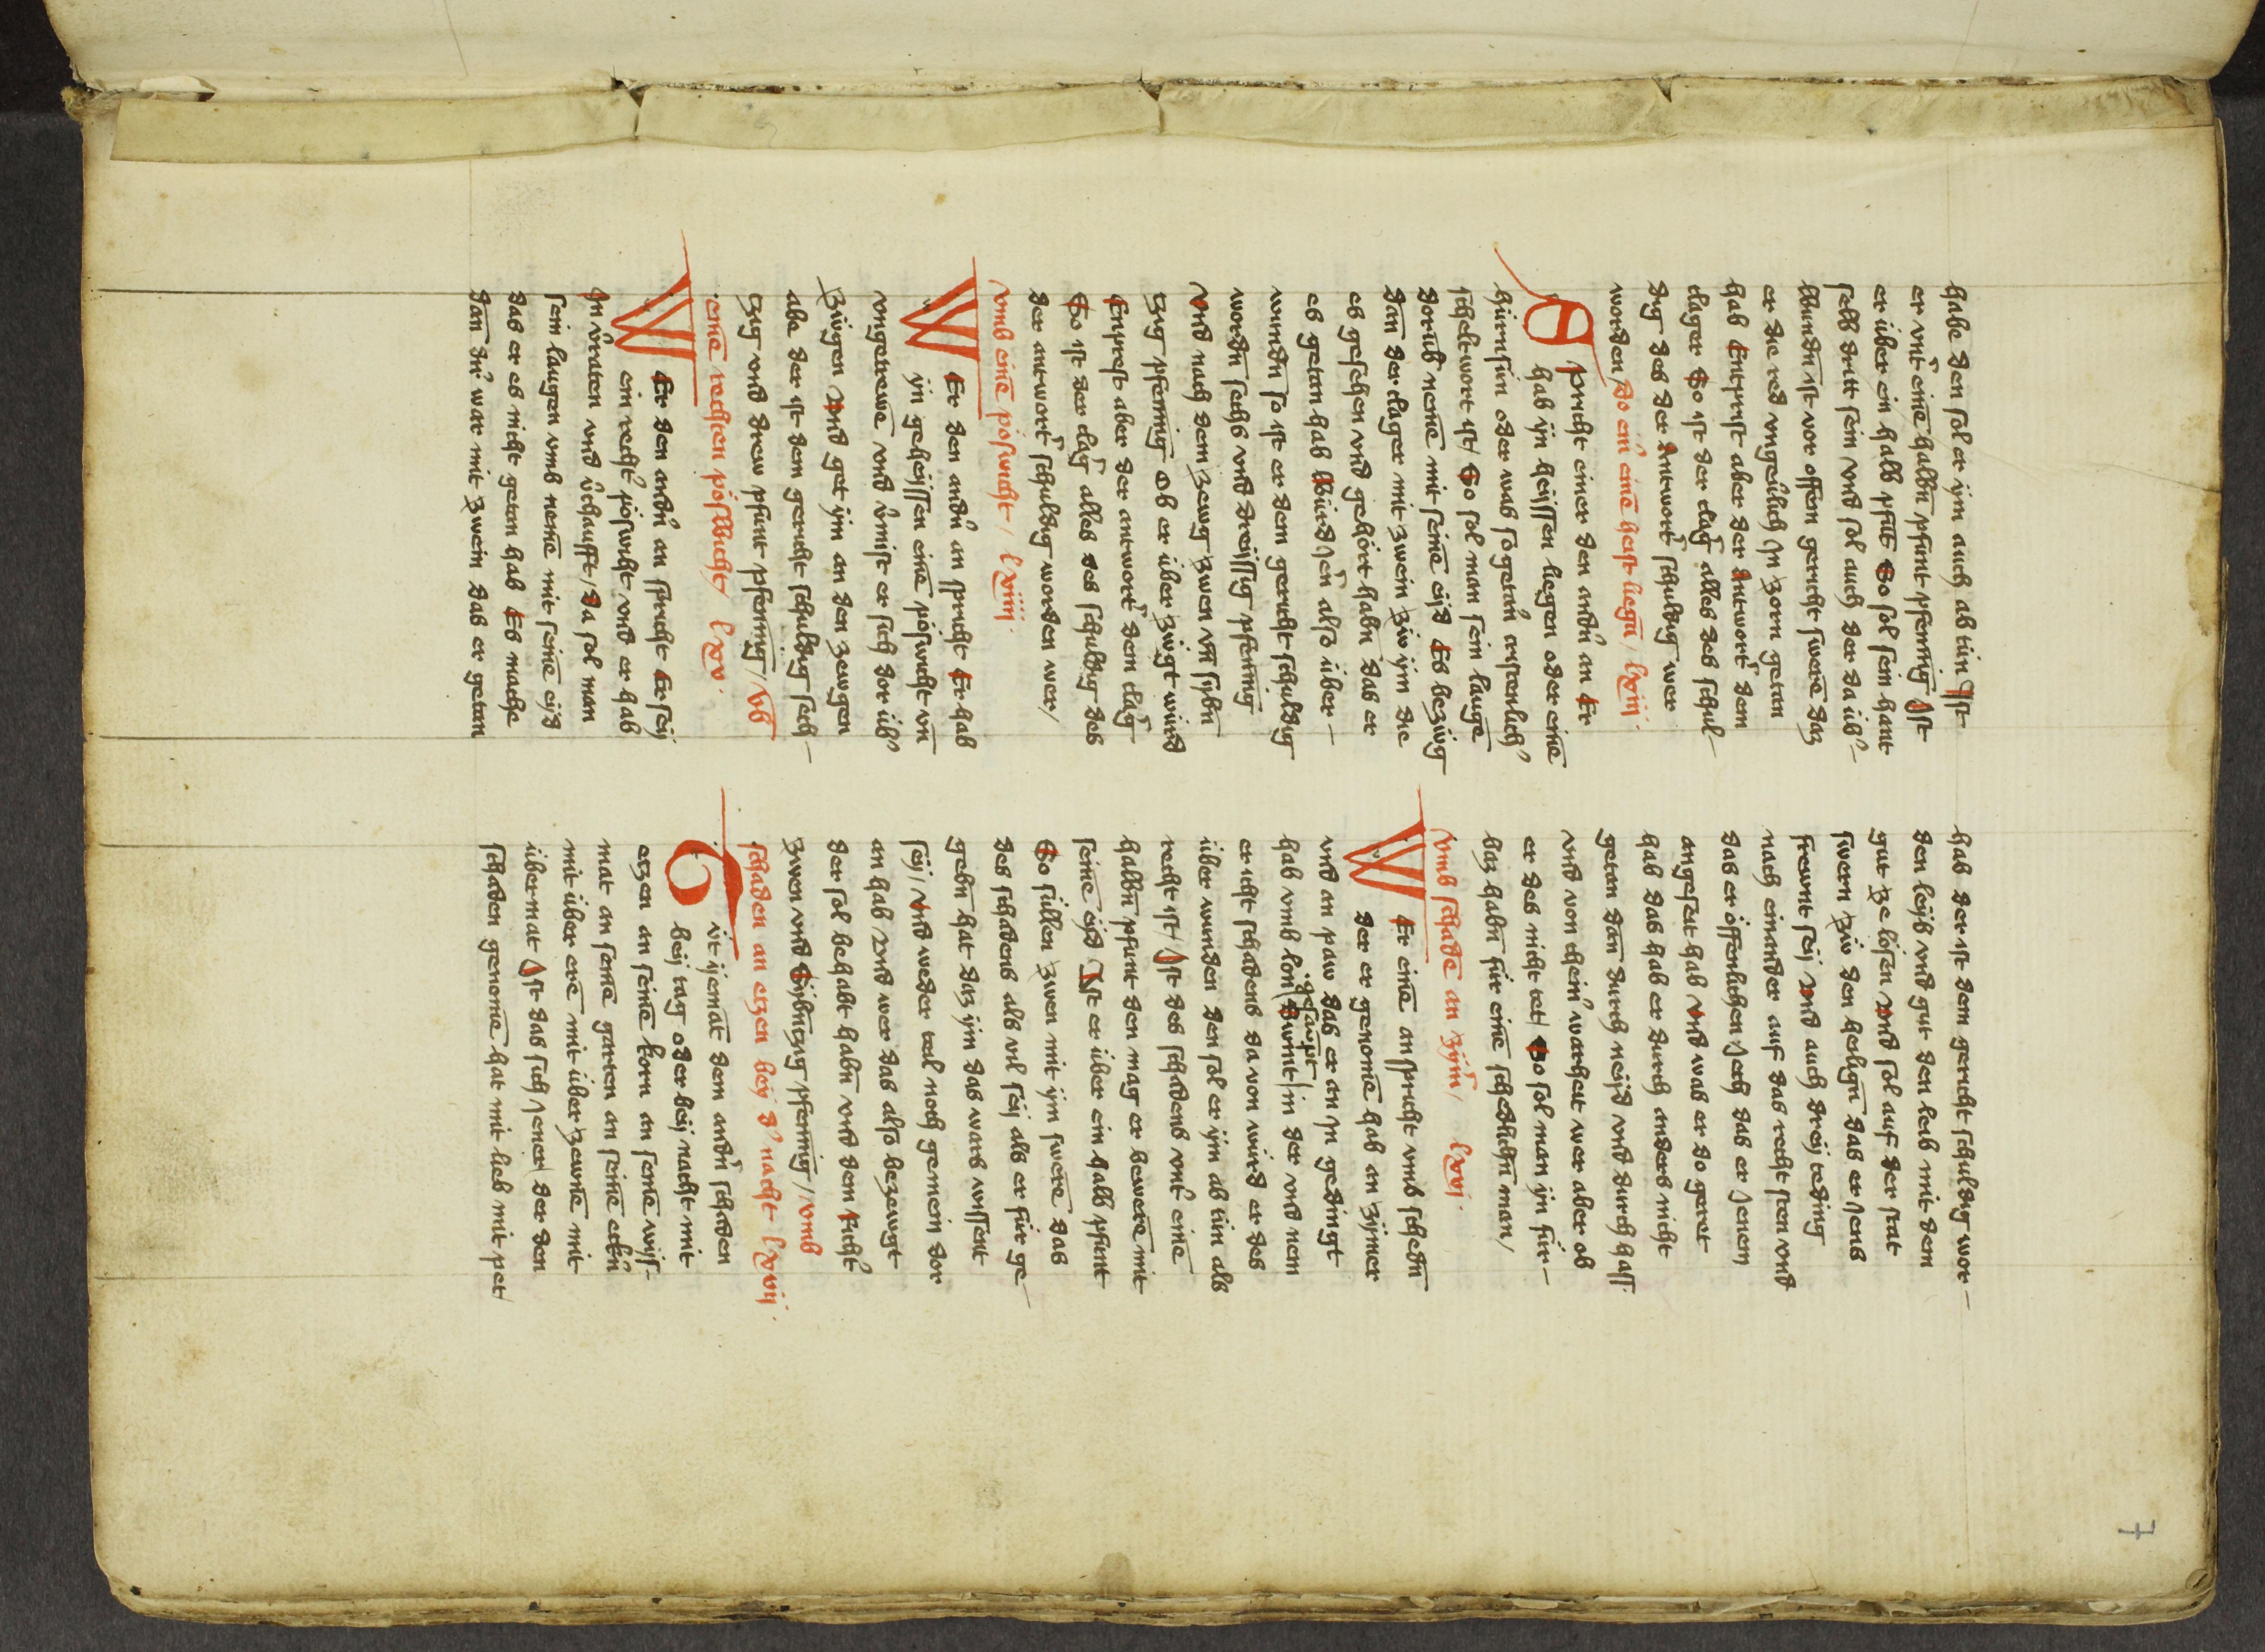 7
habe den sol er ÿm auch ab tün Ist
er vnt͛ eine͞ halbn͞ pfunt pfennig Ist
er über ein halb pfu͞t So sol sein hant
selb dritt sein vnd sol auch der da üb͛-
wundn͞ ist vor offem gericht swere͞ daz
er die red vngeu͛lich Jn zorn getan
hab Entprist aber der Antwort͛ dem
clager So ist der clag͛ alles des schul-
dig des der Antwort͛ schuldig wer
worden / Do ein͛ eine͞ heist liegn͞ / lxiij.
Spricht einer den andn͛ an Er
hab ÿn heÿssen liegen oder eine͞
hürnsün oder was sogetan͛ arstenlich͛
scheltwort ist / So sol man sein lauge͞
dorüb neme͞ mit seine͞ eÿd Es bezwg
dan͞ der clager mit zwein zw ÿm die
es gesehen vnd gehört habn͞ das er
es getan hab Würd Jen͛ also über-
wundn͞ so ist er dem gericht schuldig
wordn͞ sechs vnd dreÿssig pfenning
Vnd nach dem zewg zwen vn͞ sÿbn͞
tzig pfennig Ob er über zwgt würd
Enprest aber der antwort͛ dem clag͛
So ist der clag͛ alles des schuldig des
der antwort͛ schuldig worden wer /
vmb eine͞ pöswicht / lxiiij.
WEr den andn͛ an spricht Er hab
ÿn geheÿssen eine͞ pöswicht vn͞
vngetrewe͞ vnd v͛mist er sich dor üb͛
zwgen Vnd get ÿm an den zewgen
abe der ist dem gericht schuldig sech-
tzig vnd drew pfunt pfennig / Vb
eine͞ rechten pöswicht / lxv.
WEr den andn͛ an spricht Er seÿ
ein recht͛ pöswicht vnd er hab
Jn v͛raten vnd v͛chaufft / Da sol man
sein laugen vmb neme͞ mit seine͞ eÿd
das er es nicht getan hab Es mache
dan͞ Jn͛ war mit zwein das er getan
hab der ist dem gericht schuldig wor-
den leÿb vnd gut den leib mit dem
gut ze lösen Vnd sol auf der stat
swern zw den heilign͞ das er Jens
frewnt seÿ Vnd auch dreÿ teding
nach einander auf das recht sten vnd
das er öffenlichen Jech das er Jenem
angesait hab Vnd was er do geret
hab das hab er durch anders nicht
getan dan͞ durch neÿd vnd durch hass
vnd von chein͛ warheit wer aber ob
er des nicht tet / So sol man ÿn für-
baz habn͞ für eine͞ schedlichn͞ man /
vmb schade͞ an zÿm͛ / lxvj.
WEr eine͞ an spricht vmb schedn͞
der er genome͞ hab an zÿmer
vnd an paw das er an Jn gedingt
hab vmb lon / gesawmt / Swint / in der vnd nem
er icht schadens da von würd er des
über wunden den sol er ÿm ab tün als
recht ist / Ist des schadens vnt͛ eine͞
halbn͞ pfunt den mag er bewere͞ mit
seine͞ eÿd Ist er über ein halb pfunt
So süllen zwen mit ÿm swere͞ das
des schadens als vil seÿ als er für ge-
gebn͞ hat daz ÿm das wars wissent
seÿ / Vnd weder teil noch gemein dor
an hab Vnd wer das also bezewgt
der sol behabt habn͞ vnd dem richt͛
zwen vnd Sÿbn͞tzig pfennig / vmb
schaden an etzen beÿ d͛ nacht lxvij.
Tvt ÿemat͞ dem andn͛ schaden
beÿ tag oder beÿ nacht mit
etzen an seine͞ korn an seine͞ wÿs-
mat an seine͞ garten an seine͞ eckn͛
mit über ere͞ mit über zewne͞ mit
übermat Ist das sich Jener / der den
schaden genome͞ hat mit lieb mit pet /